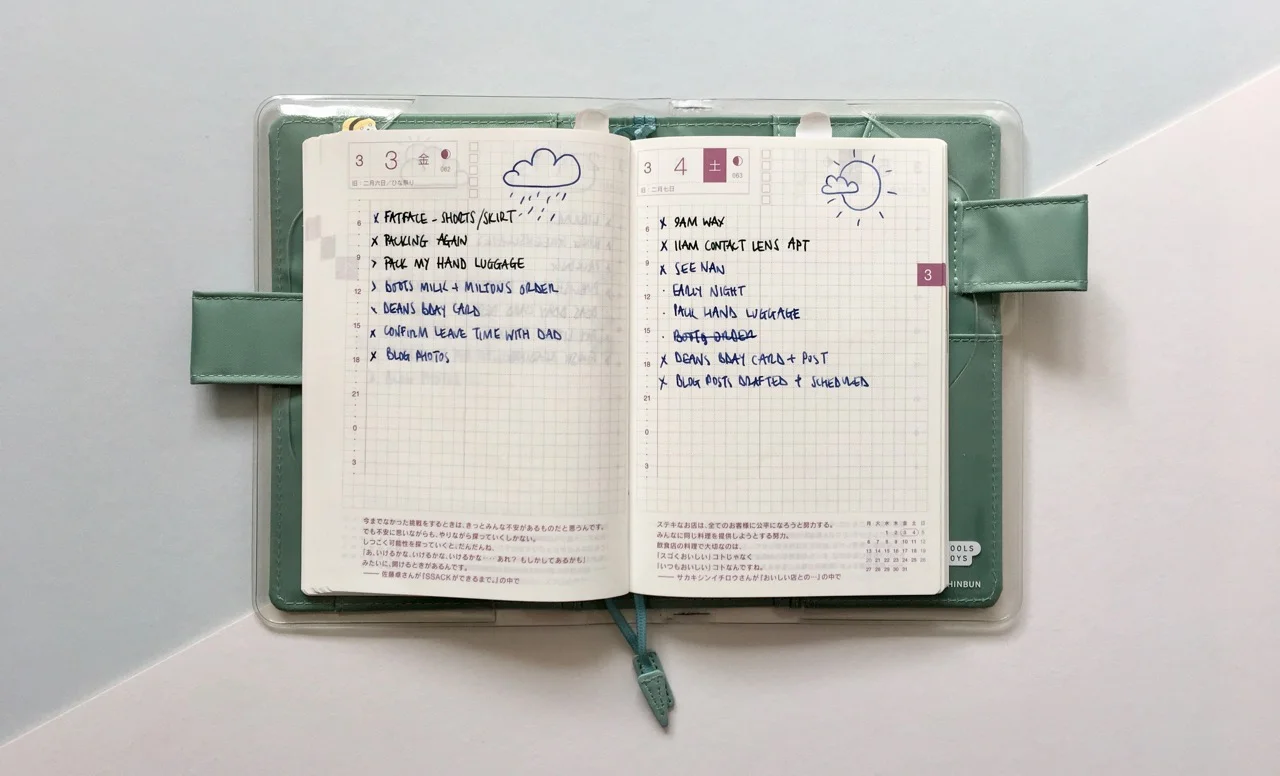 3 3 金
062
旧：二月六日／ひな祭り
x FATFACE - SHORTS/SKIRT
x PACKING AGAIN
> PACK MY HAND LUGGAGE
> BOOTS MILK + MILTONS ORDER
x DEANS BDAY CARD
x CONFIRM LEAVE TIME WITH DAD
x BLOG PHOTOS
6
9
12
15
18
21
0
3
今までなかった挑戦をするときは、きっとみんな不安があるものだと思うんです。
でも不安に思いながらも、やりながら探っていくしかない。
しつこく可能性を探っていくと、だんだんね、
「あ、いけるかな、いけるかな、いけるかな……あれ？もしかしてあるかも」
みたいに、開けるときがあるんです。
—— 佐藤卓さんが『SSACKができるまで。』の中で
3 4 土
063
旧：二月七日
x 9AM WAX
x 11AM CONTACT LENS APT
x SEE NAN
· EARLY NIGHT
· PACK HAND LUGGAGE
· BOOTS ORDER
x DEANS BDAY CARD + POST
x BLOG POSTS DRAFTED + SCHEDULED
6
9
12
15
18
21
0
3
3
ステキなお店は、全てのお客様に公平になろうと努力する。
みんなに同じ料理を提供しようとする努力。
飲食店の料理で大切なのは、
「スゴくおいしい」コトじゃなく
「いつもおいしい」コトなんですね。
—— サカキシンイチロウさんが『おいしい店との…』の中で
月 火 水 木 金 土 日
1 2 3 4 5
6 7 8 9 10 11 12
13 14 15 16 17 18 19
20 21 22 23 24 25 26
27 28 29 30 31
OOLS
OYS
HINBUN